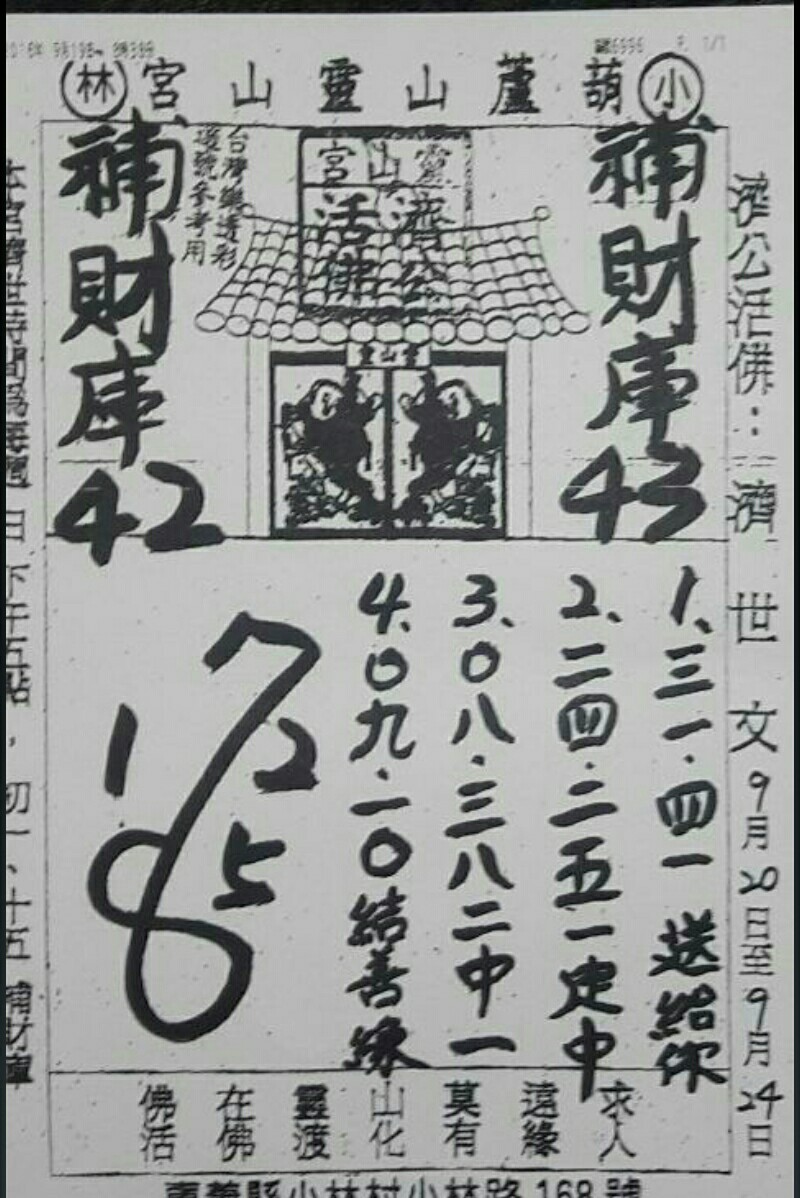 小
葫蘆山靈山宮
林
濟公活佛：濟世文9月20日至9月24日
補財庫43
靈山宮
濟公
活佛
台灣樂透彩
選號參考用
補財庫42
靈山宮
1、三一．四一送給你
2、二四．二五一定中
3、0八．三八二中一
4、0九．一0結善緣
7
1
2
5
8
求人
遠緣
莫有
山化
靈渡
在佛
佛活
本宮濟世時間為每週日下午五點，初一、十五補財庫
嘉義縣小林村小林路168號